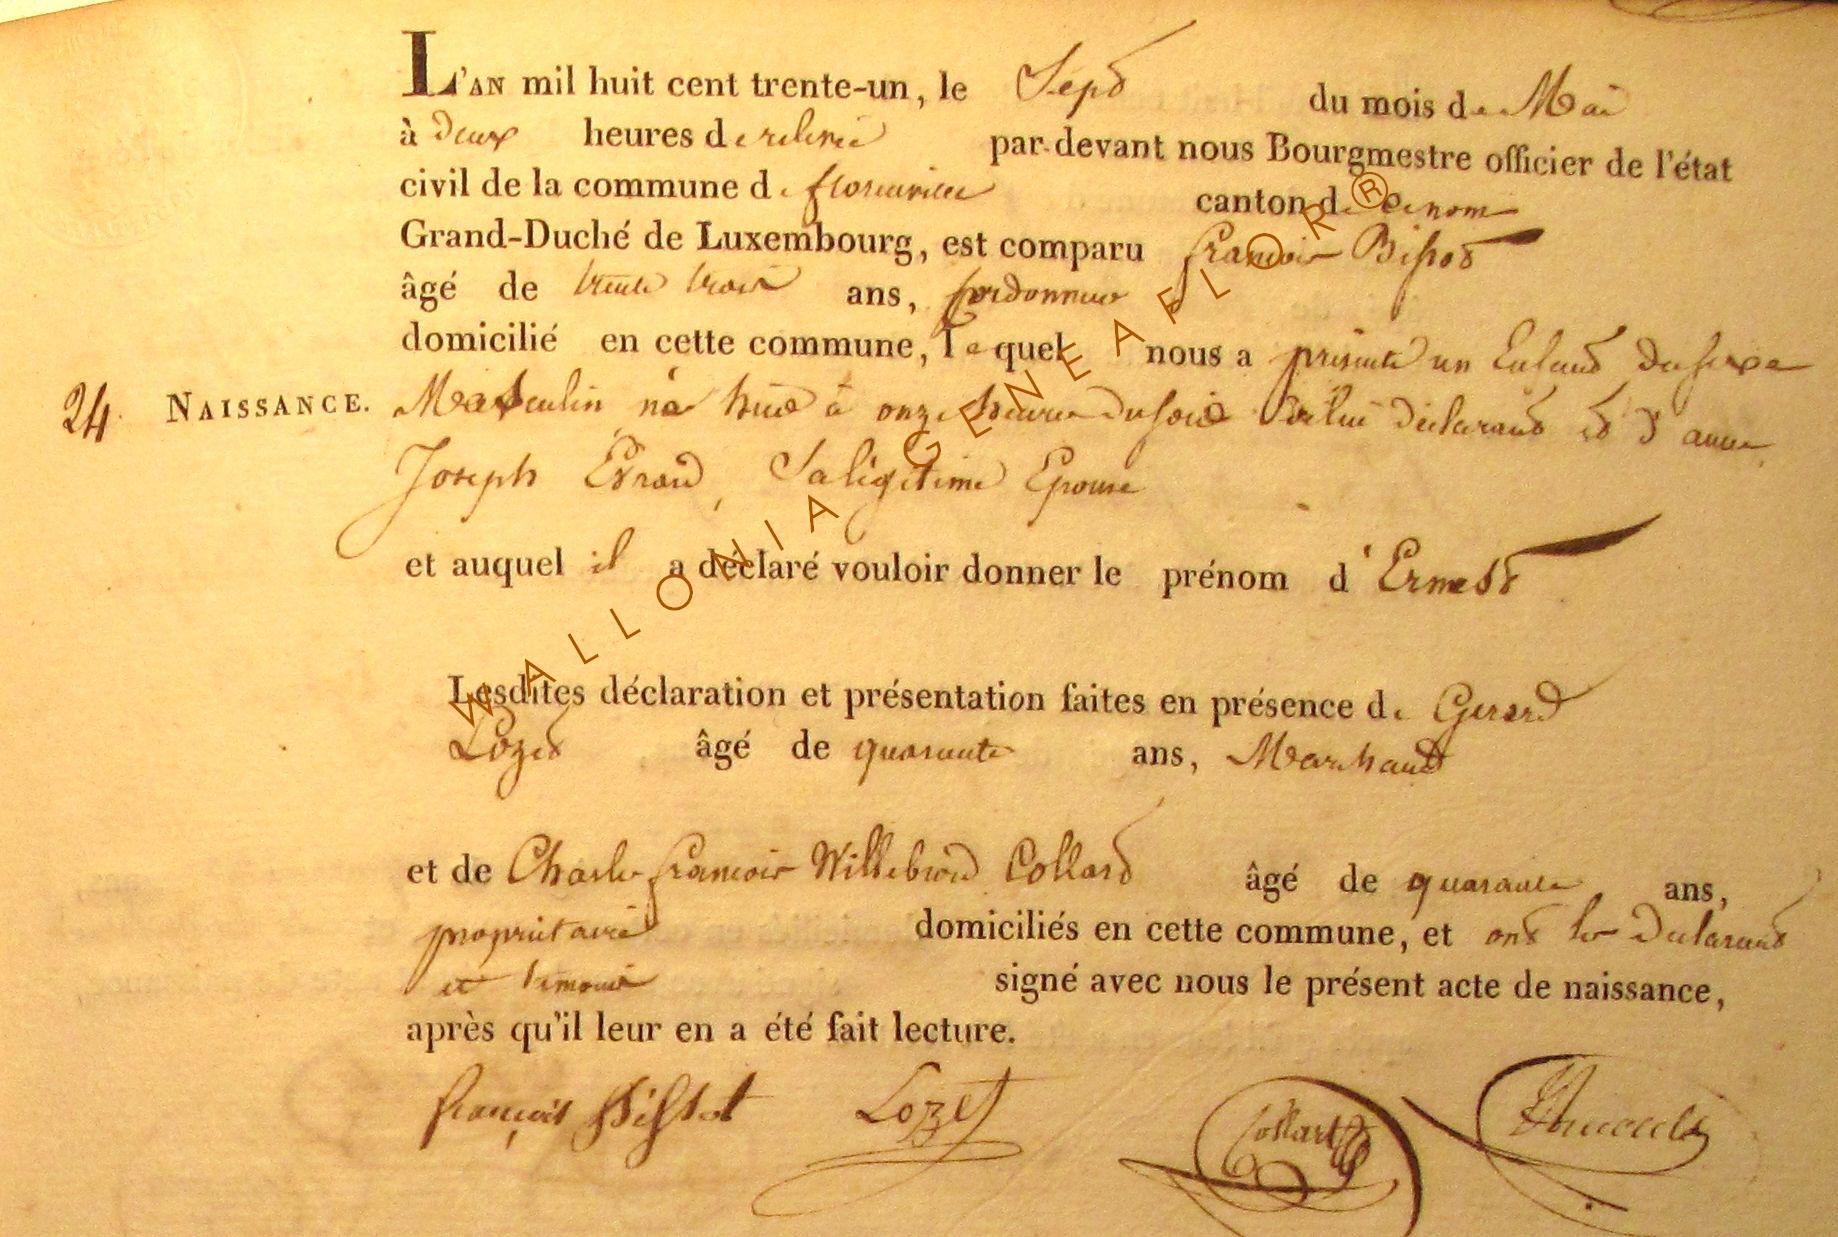 L'AN mil huit cent trente-un, le Sept du mois de Mai
à deux heures de relevée par-devant nous Bourgmestre officier de l'état
civil de la commune de florenville canton de
Grand-Duché de Luxembourg, est comparu francois Bissot
âgé de trente trois ans, Cordonnier
domicilié en cette commune, lequel nous a presenté un Enfant du sexe
24. NAISSANCE. Masculin né hier à onze heures du soir de lui déclarant et d'anne
Joseph Evrard, Sa légitime Epouse
et auquel il a déclaré vouloir donner le prénom d'Ernest
Lesdites déclaration et présentation faites en présence de Gerard
Lozet âgé de quarante ans, Marchand
et de Charles francois Willebrord Collard âgé de quarante ans,
propriétaire domiciliés en cette commune, et ont les déclarant
et temoins signé avec nous le présent acte de naissance,
après qu'il leur en a été fait lecture.
françois Bissot Lozet Collart
WALLONIA GENEAFLOR ®